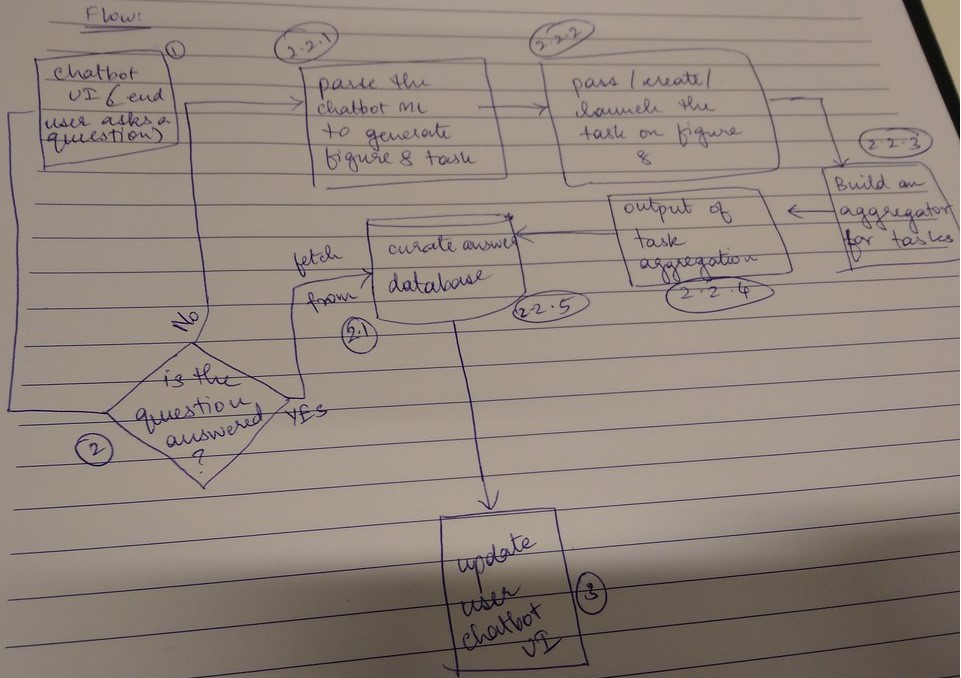 Flow:
1
chatbot
UI (end
user asks a
question)
2.2.1
parse the
chatbot ML
to generate
figure 8 task
2.2.2
pass / create /
launch the
task on figure
8
2.2.3
Build an
aggregator
for tasks
output of
task
aggregation
2.2.4
curate answer
database
2.2.5
fetch
from
2.1
No
is the
question
answered
?
YES
2
update
user
chatbot
UI
3